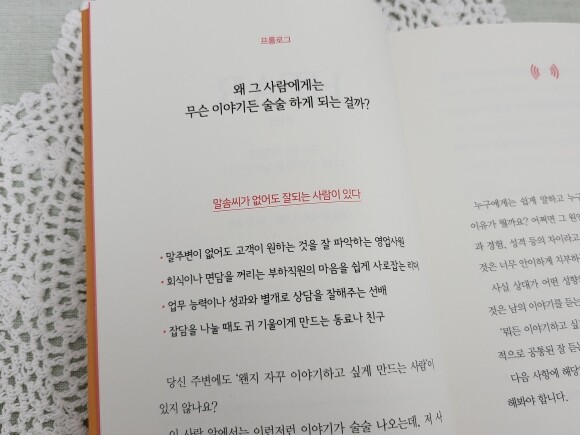 프롤로그
왜 그 사람에게는
무슨 이야기든 술술 하게 되는 걸까?
말솜씨가 없어도 잘되는 사람이 있다
• 말주변이 없어도 고객이 원하는 것을 잘 파악하는 영업사원
• 회식이나 면담을 꺼리는 부하직원의 마음을 쉽게 사로잡는 리더
• 업무 능력이나 성과와 별개로 상담을 잘해주는 선배
• 잡담을 나눌 때도 귀 기울이게 만드는 동료나 친구
당신 주변에도 '왠지 자꾸 이야기하고 싶게 만드는 사람'이
있지 않나요?
이 사람 앞에서는 이런저런 이야기가 술술 나오는데, 저 사
누구에게는 쉽게 말하고 누구
이유가 뭘까요? 어쩌면 그 원
과 경험, 성격 등의 차이라고
것은 너무 안이하게 치부하
사실 상대가 어떤 성향
것은 남의 이야기를 듣는
'뭐든 이야기하고 싶
적으로 공통된 잘 듣는
다음 사항에 해당
해봐야 합니다.